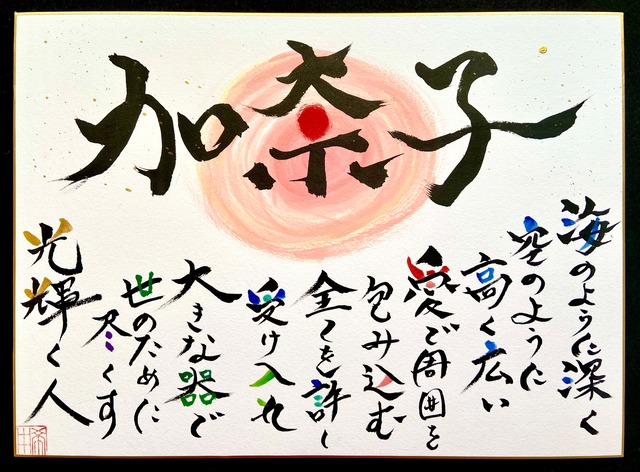 加奈子
海のように深く
空のように
高く広い
愛で周囲を
包み込む
全てを許し
受け入れ
大きな器で
世のために
尽くす
光輝く人